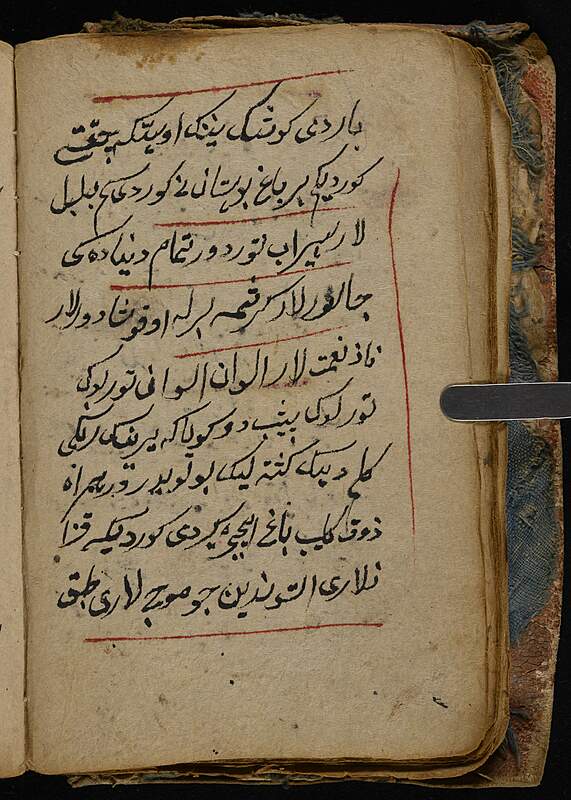 باردی کوشک نینک اوستیکه چقتی
کوردیکه بر باغ بوستانی نی کوردی کم بلبل
لار سیراب تور دور تمام دنیاده کی
جانورلار کرشمه برله اوقوشادورلار
ناز نعمت لار الوان الوانی تورلوک
تورلوک بیشب دور کویاکه یرنینک
کلخ دینک کشته لیک بولوبدور همراه
ذوق کلیب باغ ایچی کیردی کوردیکه قزا
نلاری التوندین جوموچ لاری